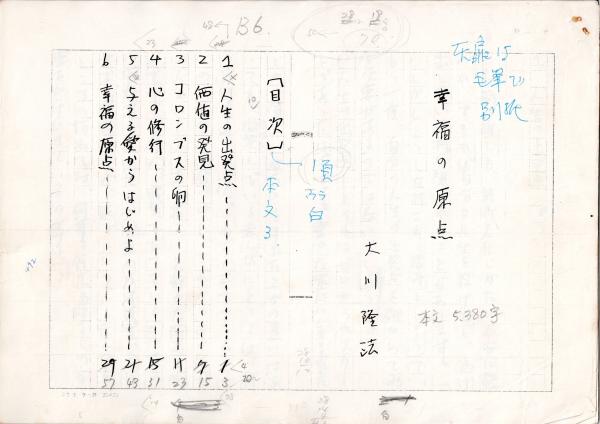 B6
灰扉は
毛筆で
別紙
幸福の原点
大川隆法
本文 5.380字
「目次」
1頁
ァラ
白
本文3.
1 人生の出発点 1 3
2 価値の発見 7 15
3 コロンブスの卵 11 23
4 心の修行 15 31
5 与える愛からはじめよ 21 43
6 幸福の原点 29 57